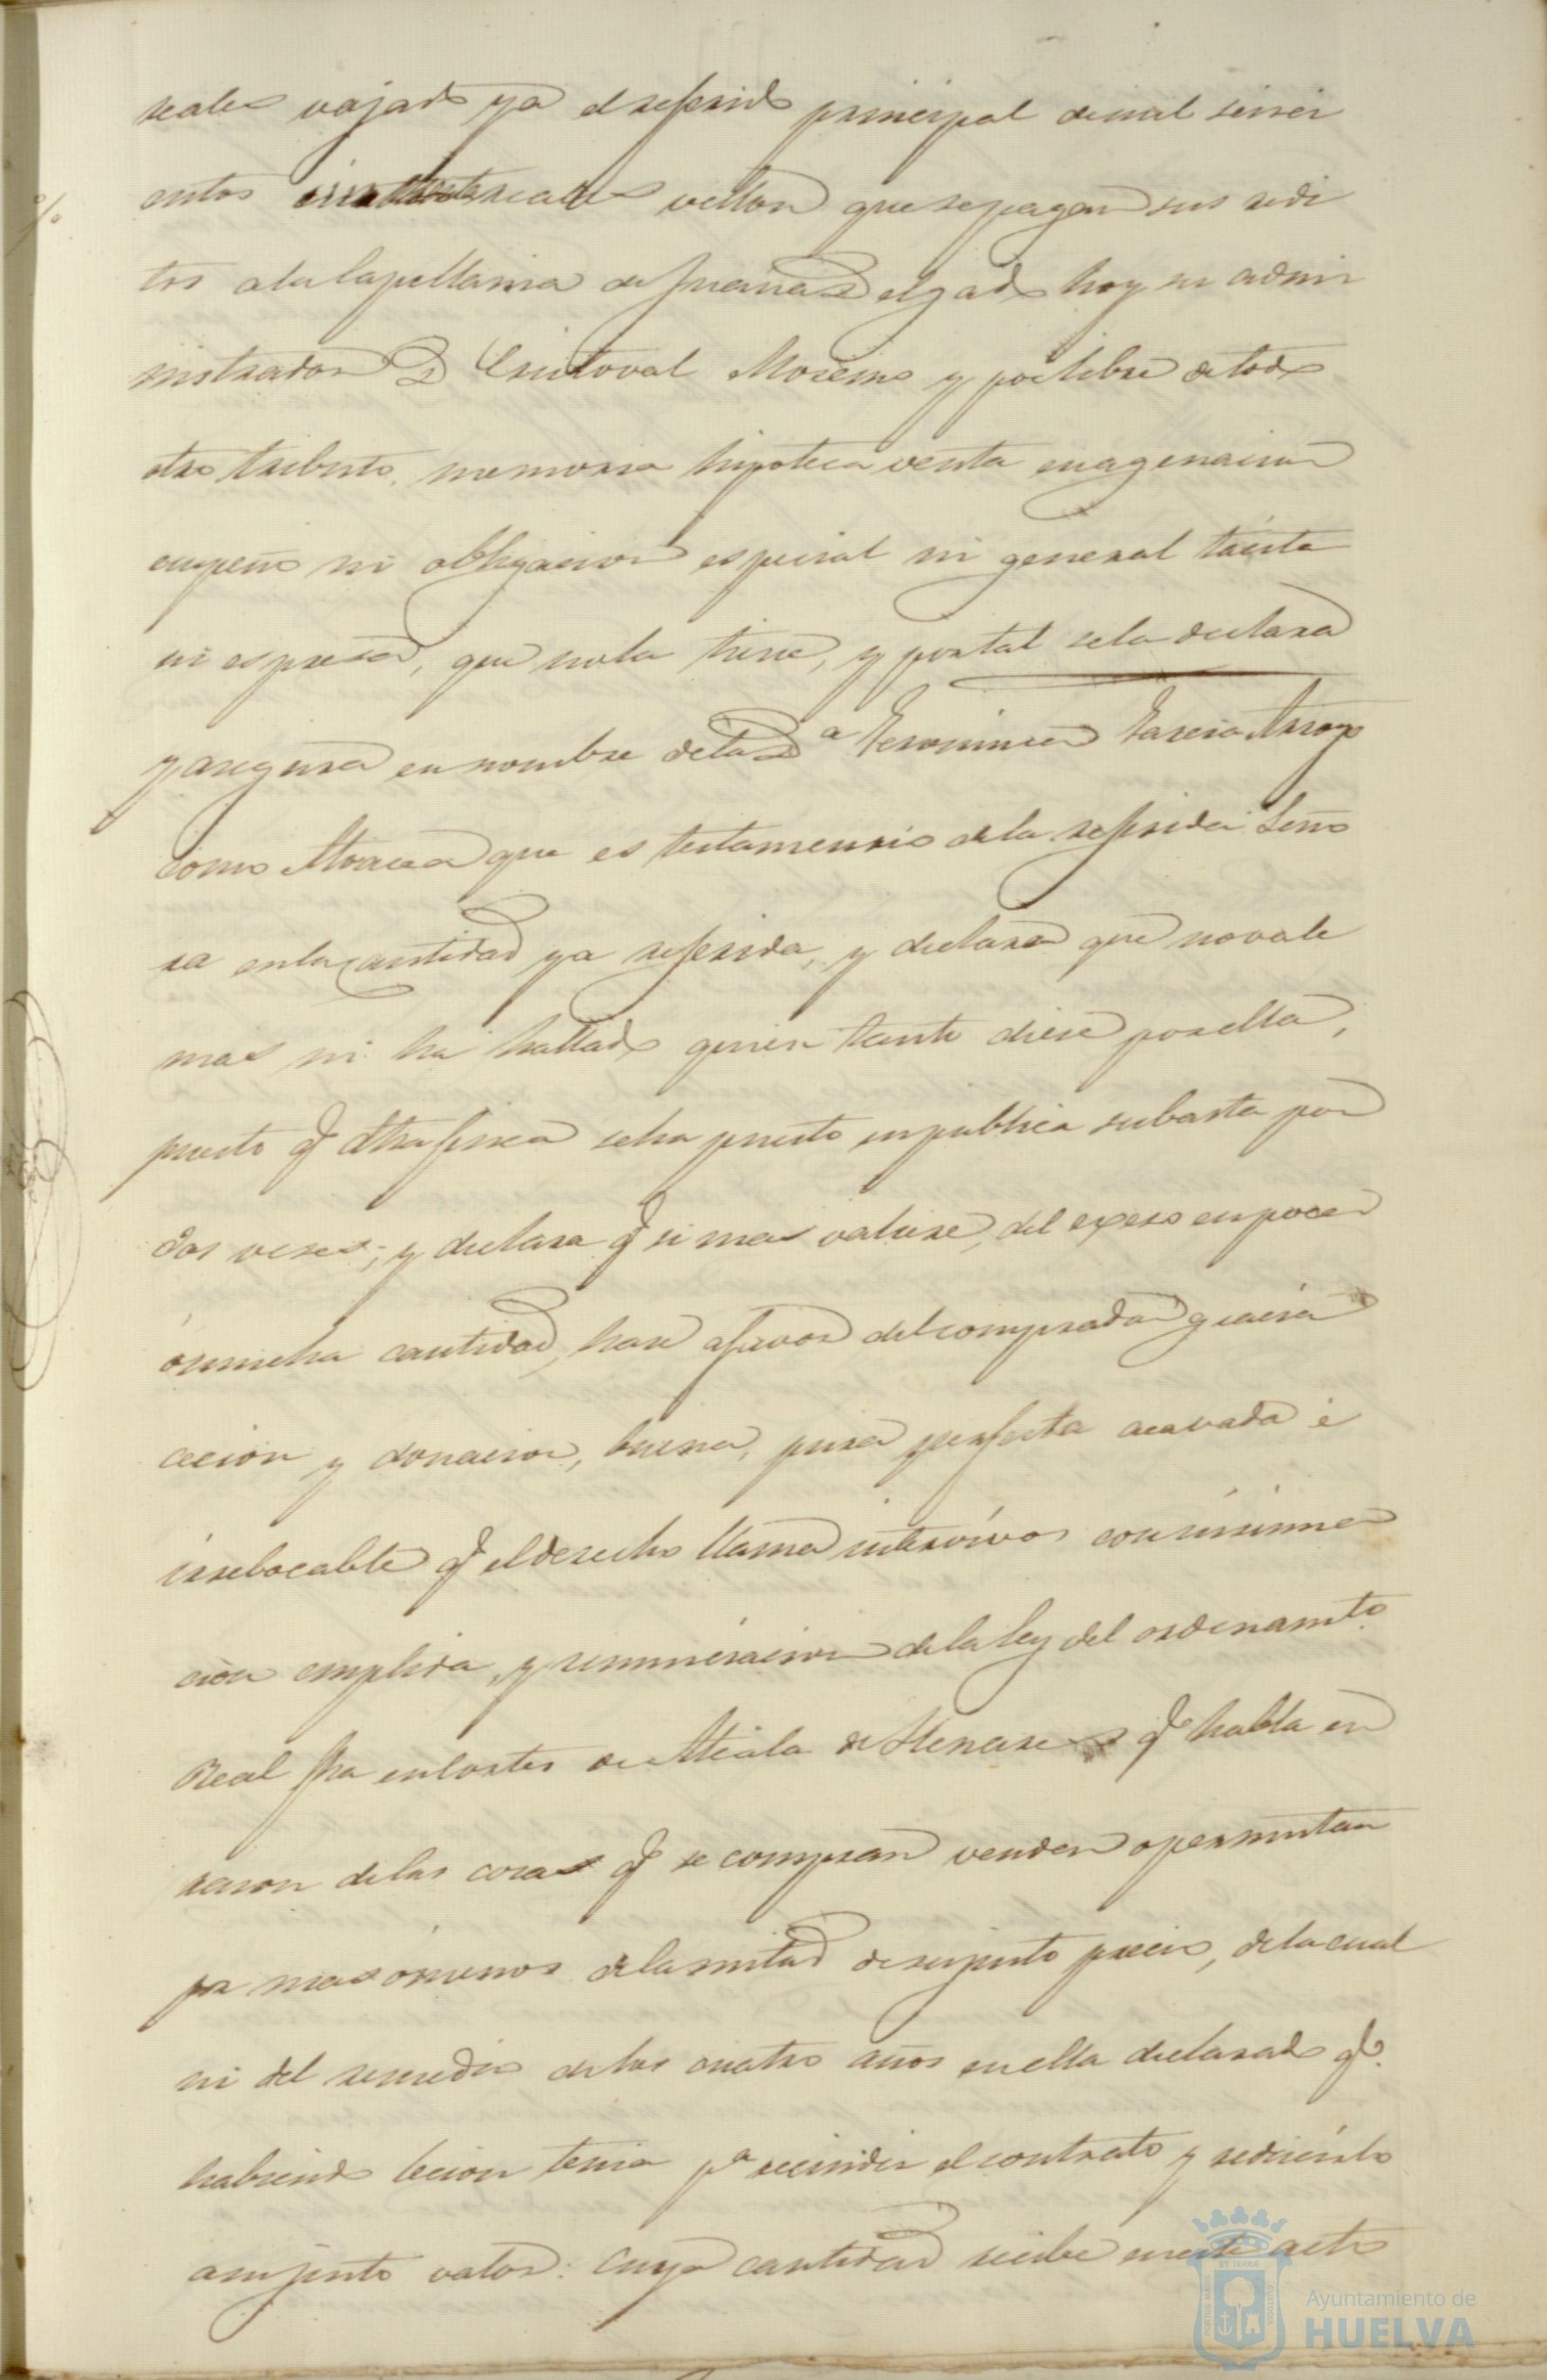 reales vajado ya el referido principal de mil seisci
entos reales vellon que se pagan sus redi
tos a la Capellania de Juana Delgado hoy su admi
nistrador D Cristoval Moreno y por libre de todo
otro tributo, memoria hipoteca venta enagenacion
empeño ni obligacion especial ni general tácita
ni espresa, que no la tiene, y por tal se la declara
y asegura en nombre de la Dª Geronima Garcia Arroyo
como Alvacea que es testamentario de la referida Seño
ra en la cantidad ya referida, y declara que no vale
mas ni ha hallado quien tanto diese por ella,
puesto q dha finca se ha puesto en publica subasta por
dos veses; y declara q si mas valiese, del exeso en poca
ó mucha cantidad, hase a favor del comprador gracia
cecion y donacion, buena, pura perfecta acavada é
irrebocable q el derecho llama intervivos con incinua
cion cumplida, y renunciacion de la ley del ordenamto
Real fha en Cortes de Alcala de Henares q habla en
rason de las cosas q se compran venden o permutan
pr mas ó menos de la mitad de su justo precio, de la cual
ni del remedio de los cuatro años en ella declarado q.
habiendo lecion tenia pª recindir el contrato y reducirlo
a su justo valor: Cuya cantidad recibe en este acto
Ayuntamiento de
HUELVA